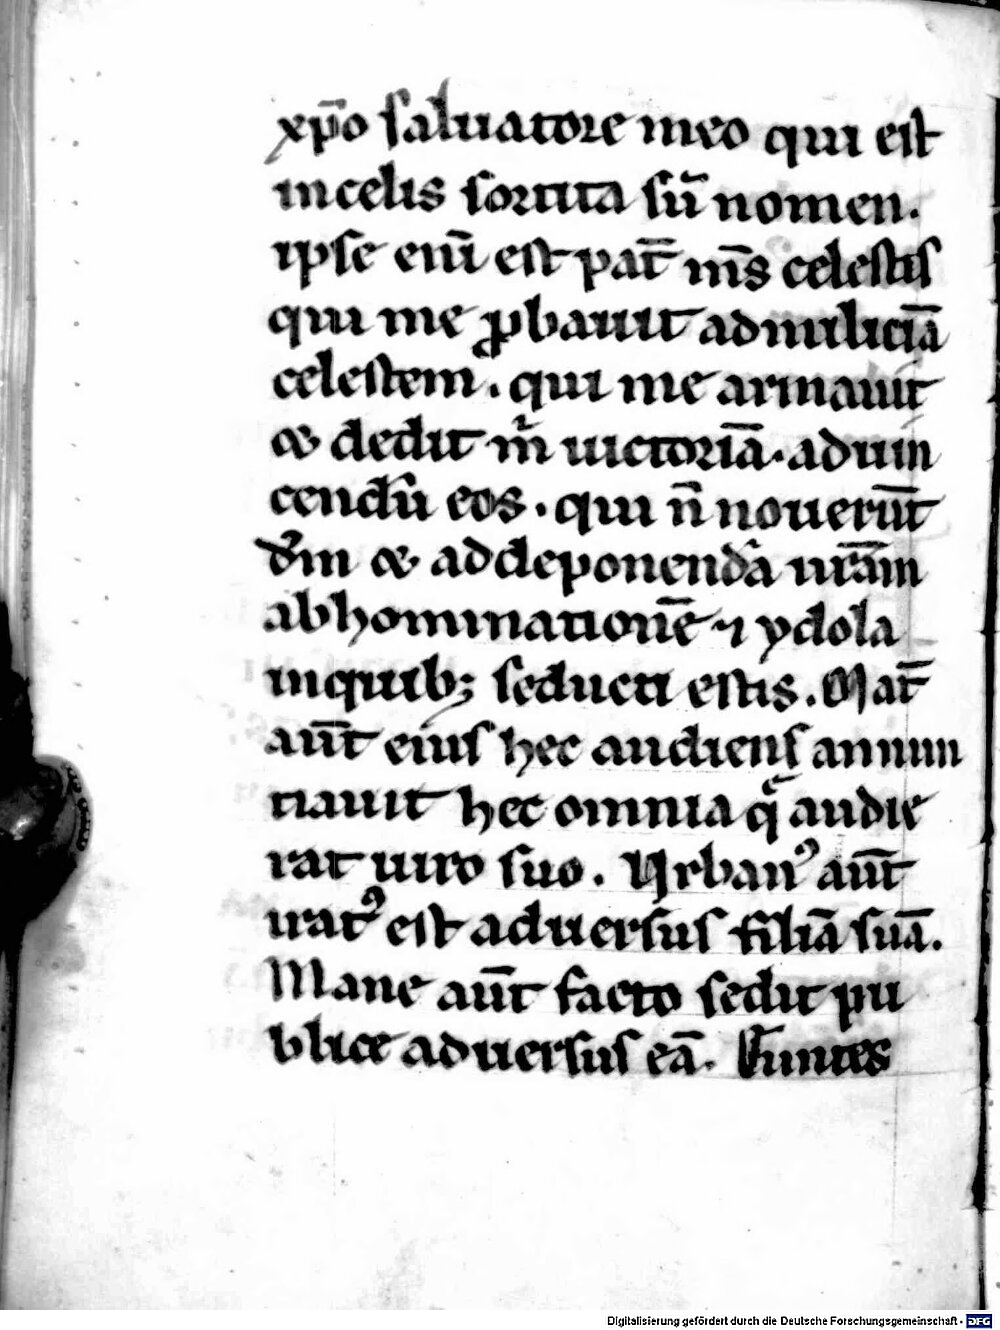 xp̄o saluatore meo qui est
in celis sortita sū nomen.
ipse eni̅ est pat̄ m̄s celestis
qui me ꝓbauit ad miliciā
celestem. qui me armauit
& dedit m̄ uictoriā. ad uin
cendū eos. qui n̄ nouerūt
dm̄ & ad deponendā ur̄am
abhominationē ⁊ ydola
in quib; seducti estis. Mat̄
aut̄ eius hec audiens annun
tiauit hec omnia q̄ audie
rat uiro suo. Vrbanꝰ aut̄
iratꝰ est aduersus filiā suā.
Mane aut̄ facto sedit pu
blice aduersus eā.
Digitalisierung gefördert durch die Deutsche Forschungsgemeinschaft - DFG